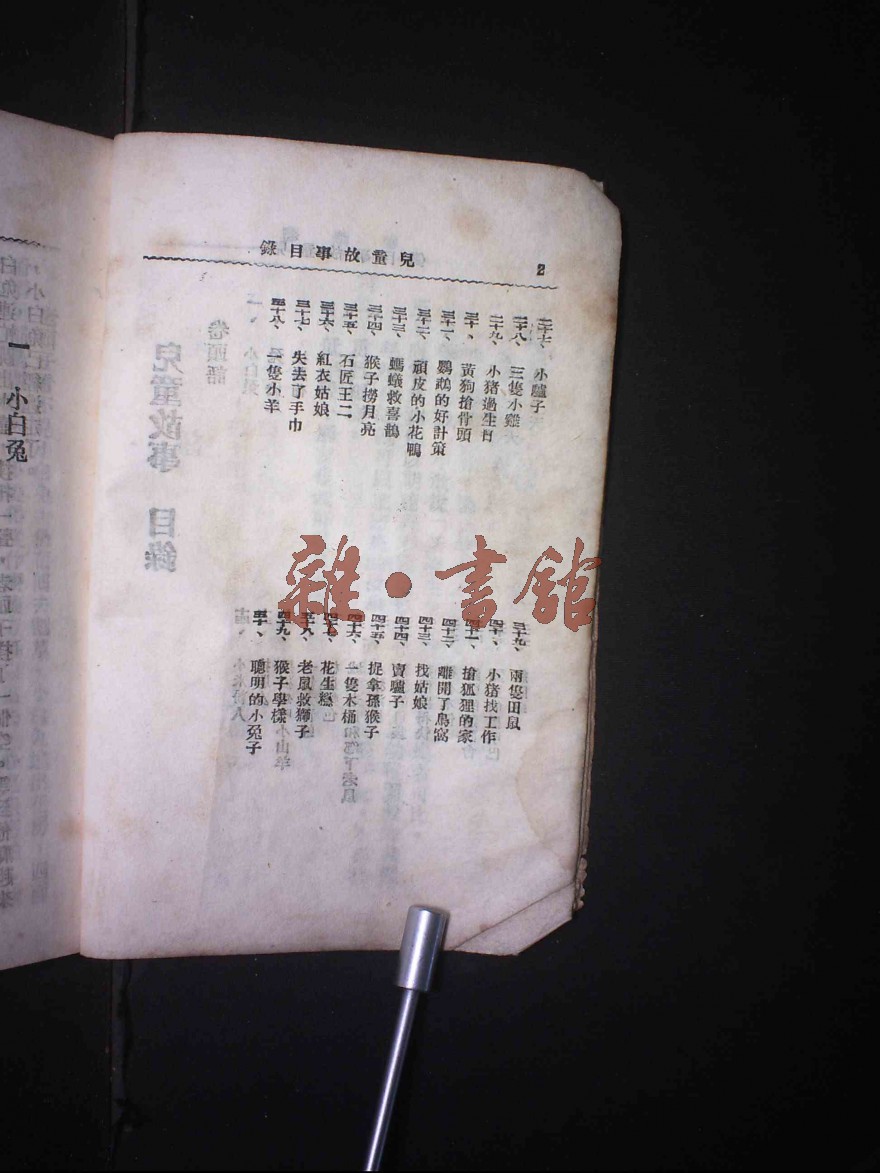 兒童故事目錄
2
二十七、小驢子
二十八、三隻小雞
二十九、小猪過生日
三十、黃狗搶骨頭
三十一、鸚鵡的好計策
三十二、頑皮的小花鴨
三十三、螞蟻救喜鵲
三十四、猴子撈月亮
三十五、石匠王二
三十六、紅衣姑娘
三十七、失去了手巾
三十八、一隻小羊
三十九、兩隻田鼠
四十、小猪找工作
四十一、搶狐狸的家
四十二、離開了鳥窩
四十三、找姑娘
四十四、賣驢子
四十五、捉拿孫猴子
四十六、一隻木桶
四十七、花生糖
四十八、老鼠救獅子
四十九、猴子學樣
五十、聰明的小兔子
一 小白兔
雜·書館